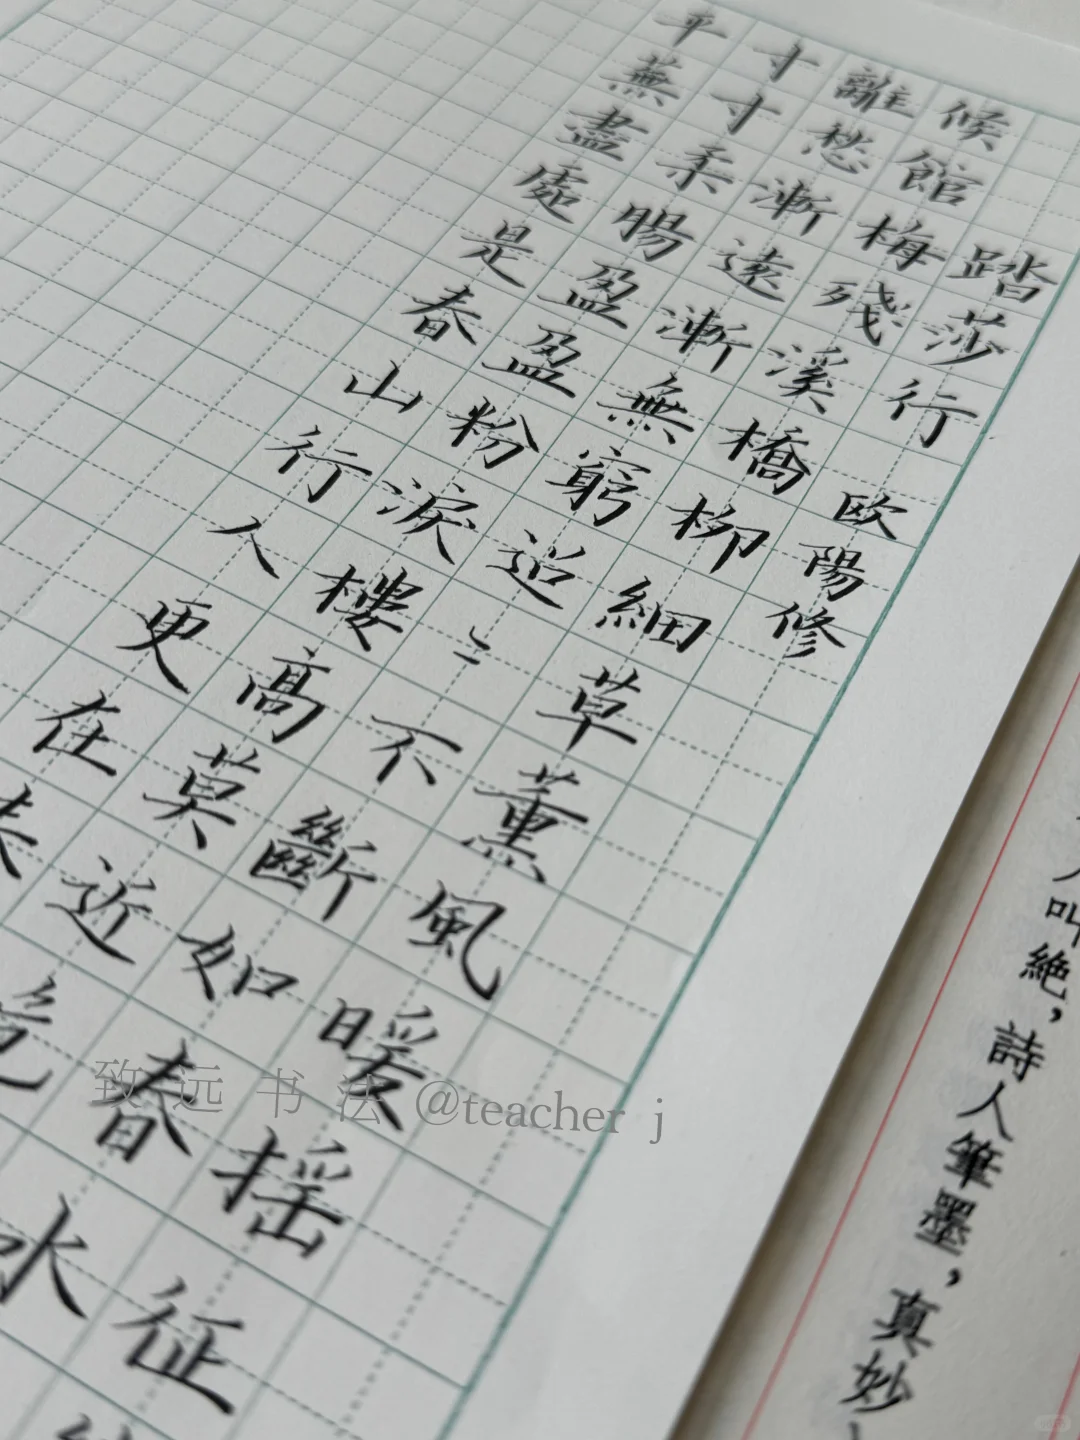 踏莎行 歐陽修
候館梅殘溪橋柳細草薰風暖摇征
離愁漸遠漸無窮迢〻不斷如春水
寸寸柔腸盈盈粉淚樓高莫近
平蕪盡處是春山行人更在
叫絶，詩人筆墨，真妙
致远书法@teacher j